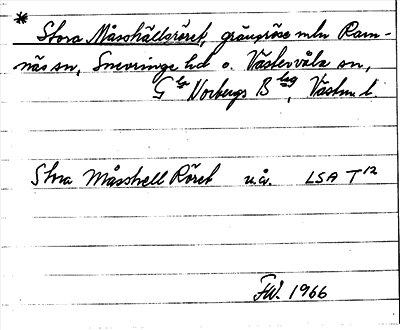 * Stora Mässhällsröset, gränsröse mln Ram-
näs sn, Snevringe hd o. Västervåla sn,
G:la Norbergs B:lag, Västm. l.
Stora Måsshell Röset u.å. LSA T 12
FW. 1966